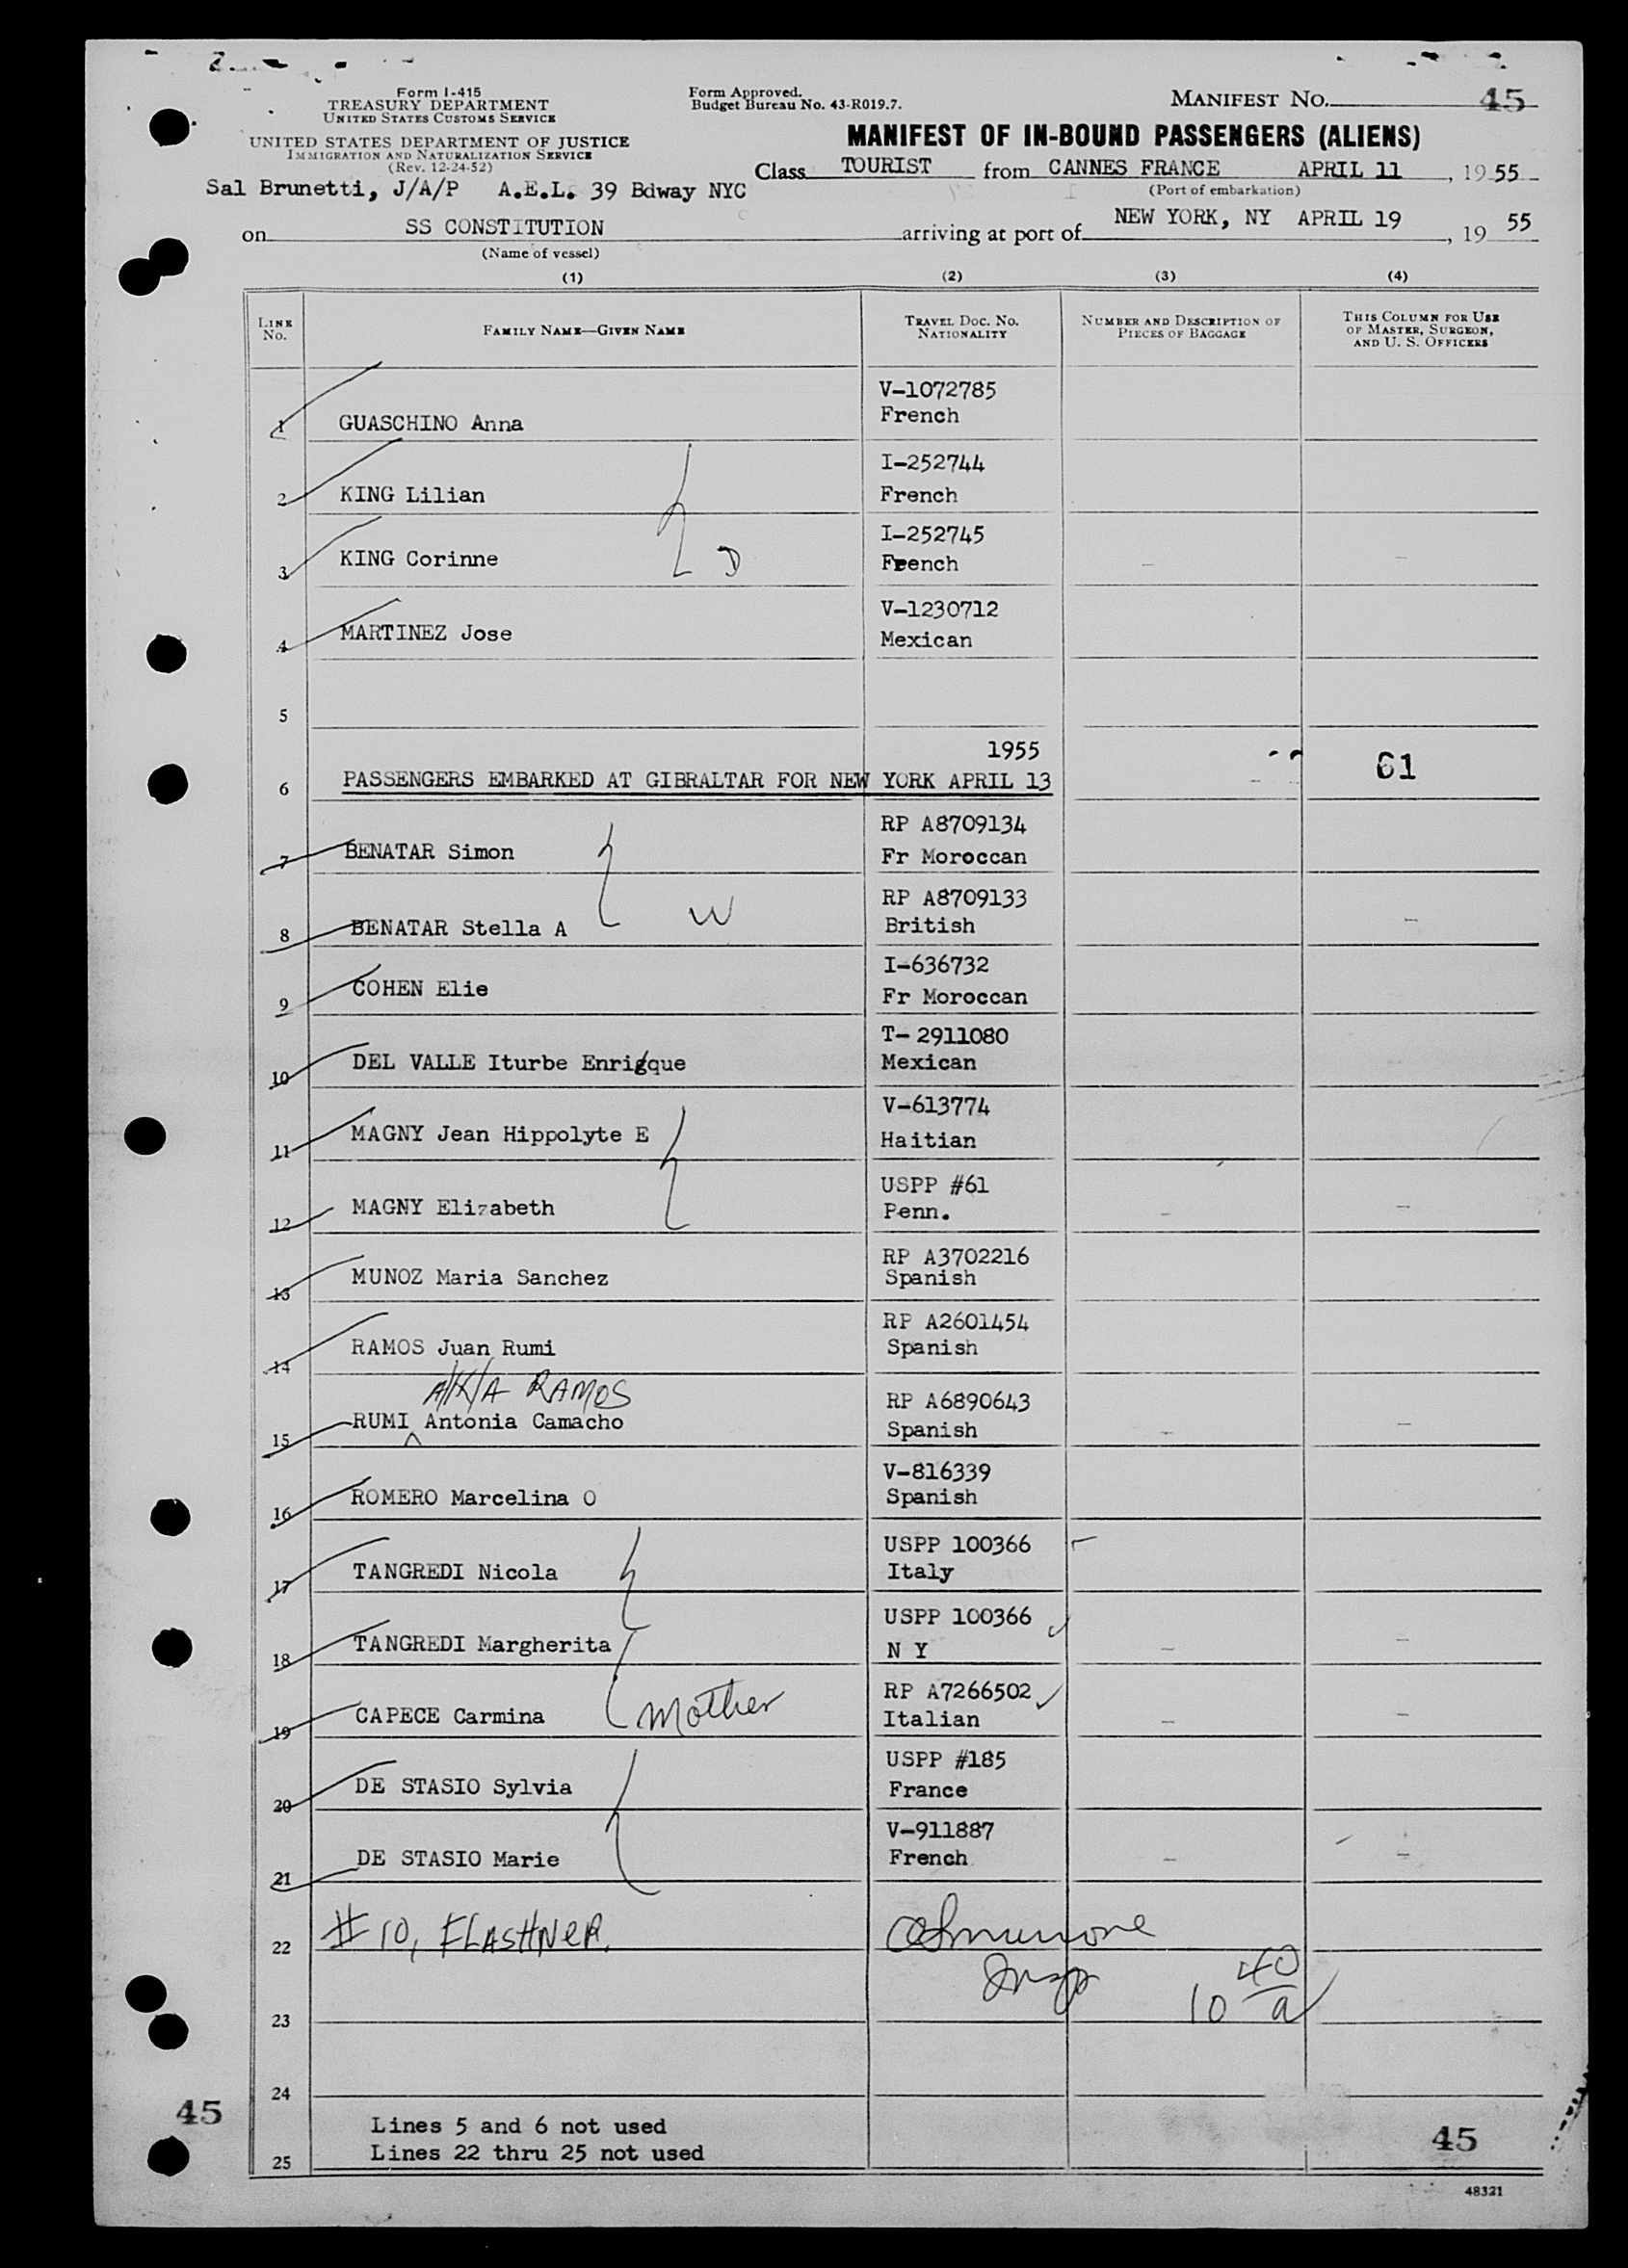 Form I-415
TREASURY DEPARTMENT
UNITED STATES CUSTOMS SERVICE
UNITED STATES DEPARTMENT OF JUSTICE
IMMIGRATION AND NATURALIZATION SERVICE
(Rev. 12-24-52)
Form Approved.
Budget Bureau No. 43-R019.7.
MANIFEST NO. 45
MANIFEST OF IN-BOUND PASSENGERS (ALIENS)
Class TOURIST from CANNES FRANCE APRIL 11, 1955
(Port of embarkation)
Sal Brunetti, J/A/P A.E.L. 39 Bdway NYC
on SS CONSTITUTION arriving at port of NEW YORK, NY APRIL 19, 19 55
(Name of vessel)
(1) (2) (3) (4)
LINE No. FAMILY NAME—GIVEN NAME TRAVEL DOC. NO. NATIONALITY NUMBER AND DESCRIPTION OF PIECES OF BAGGAGE THIS COLUMN FOR USE OF MASTER, SURGEON, AND U. S. OFFICERS
1 GUASCHINO Anna V-1072785 French
2 KING Lilian I-252744 French
3 KING Corinne D I-252745 French
4 MARTINEZ Jose V-1230712 Mexican
5
1955
6 PASSENGERS EMBARKED AT GIBRALTAR FOR NEW YORK APRIL 13 61
7 BENATAR Simon RP A8709134 Fr Moroccan
8 BENATAR Stella A W RP A8709133 British
9 COHEN Elie I-636732 Fr Moroccan
10 DEL VALLE Iturbe Enrigque T-2911080 Mexican
11 MAGNY Jean Hippolyte E V-613774 Haitian
12 MAGNY Elizabeth USPP #61 Penn.
13 MUNOZ Maria Sanchez RP A3702216 Spanish
14 RAMOS Juan Rumi RP A2601454 Spanish
A/K/A RAMOS
15 RUMI Antonia Camacho RP A6890643 Spanish
16 ROMERO Marcelina O V-816339 Spanish
17 TANGREDI Nicola USPP 100366 Italy
18 TANGREDI Margherita USPP 100366 N Y
19 CAPECE Carmina Mother RP A7266502 Italian
20 DE STASIO Sylvia USPP #185 France
21 DE STASIO Marie V-911887 French
22 #10, FLASHNER.
Insp
23 10 40/a
24
Lines 5 and 6 not used
25 Lines 22 thru 25 not used
45 45
48321